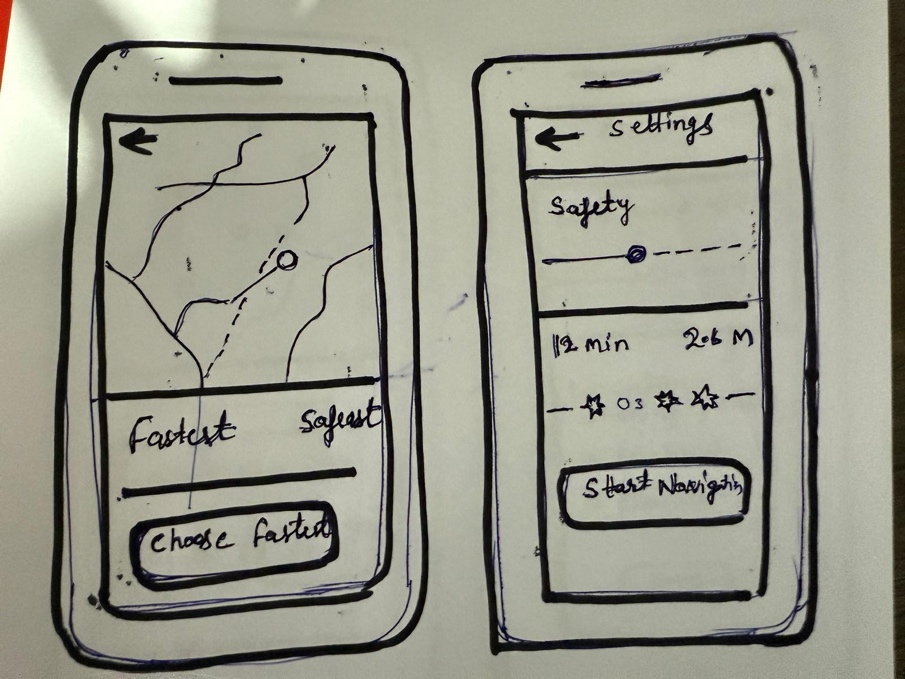 Fastest Safeast
Choose Fastest
Settings
Safety
12 min 2.6 M
03
Start Navigatin